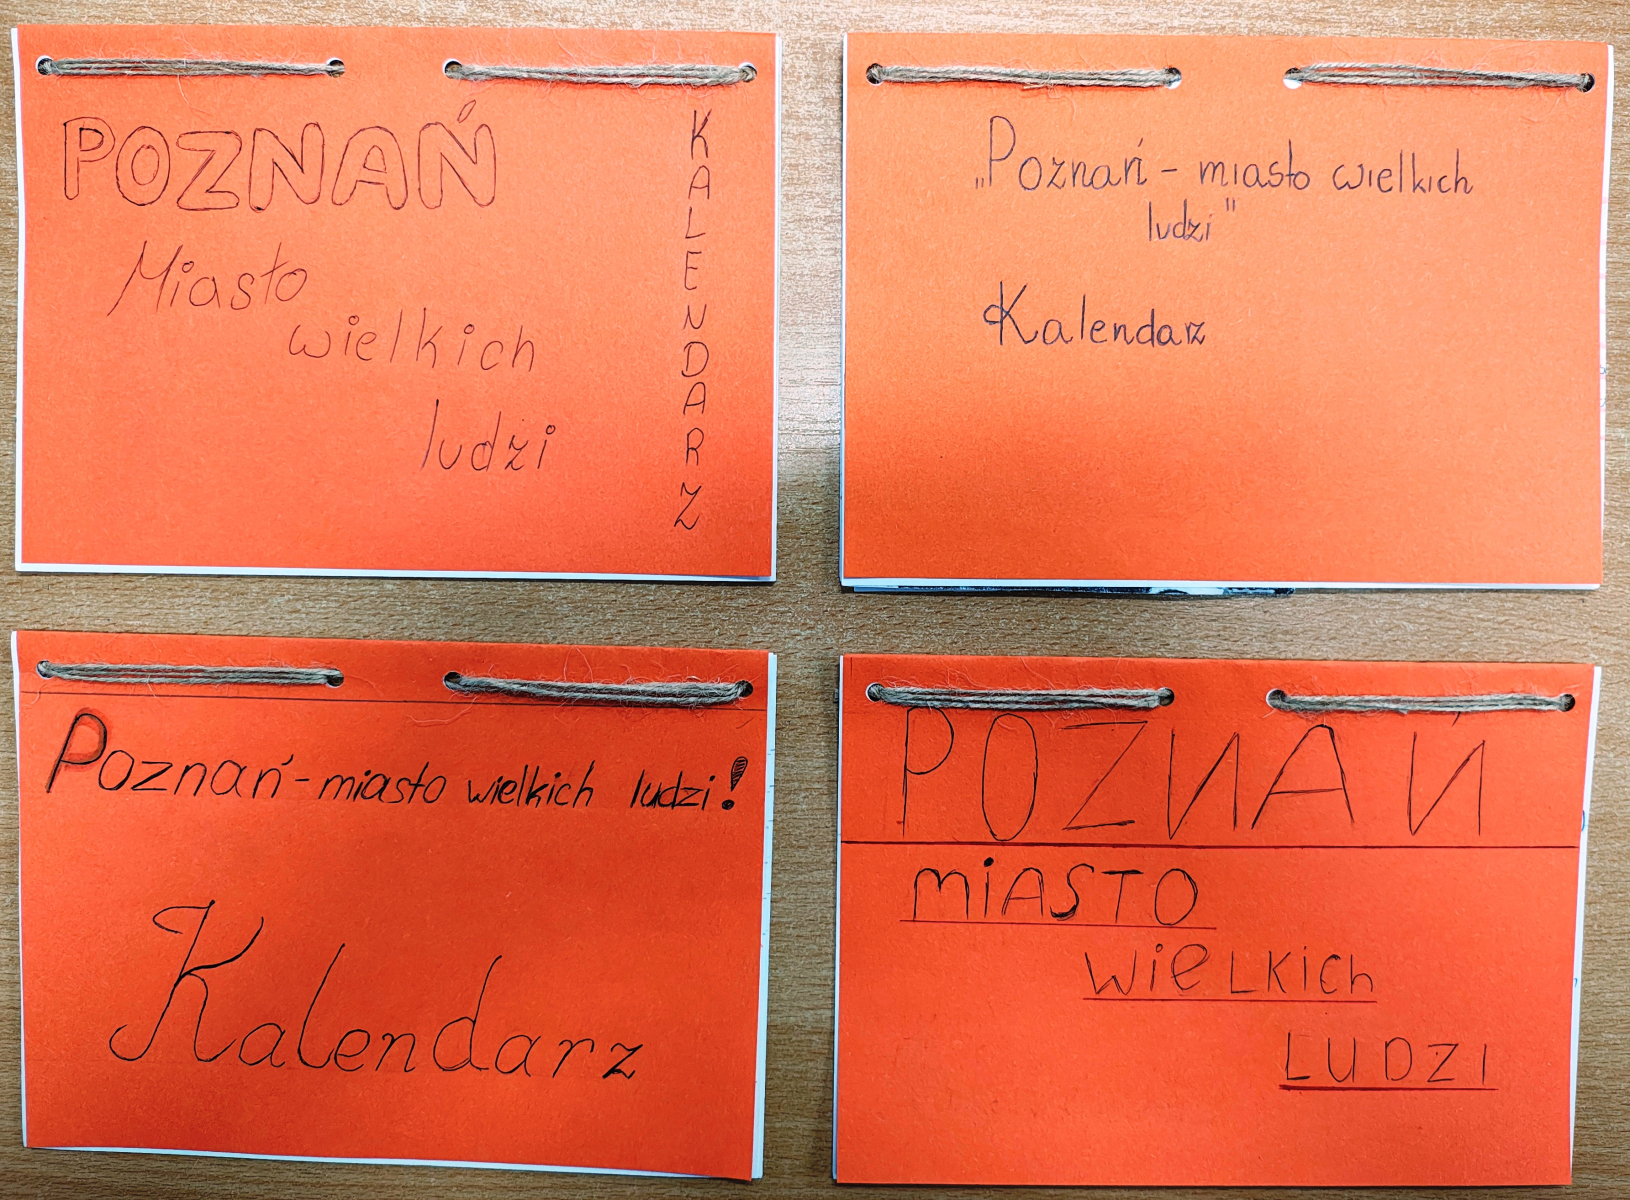 POZNAŃ
Miasto
wielkich
ludżi
KALENDARZ
„Poznań – miasto wielkich
ludzi"
Kalendarz
Poznań – miasto wielkich ludzi!
Kalendarz
POZNAŃ
MiASTO
WiELKiCh
LUDZI